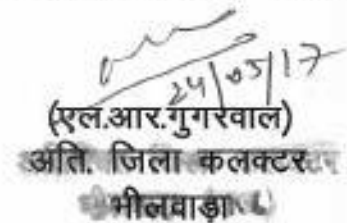 24/05/17
(एल.आर.गुगरवाल)
अति. जिला कलक्टर
भीलवाड़ा